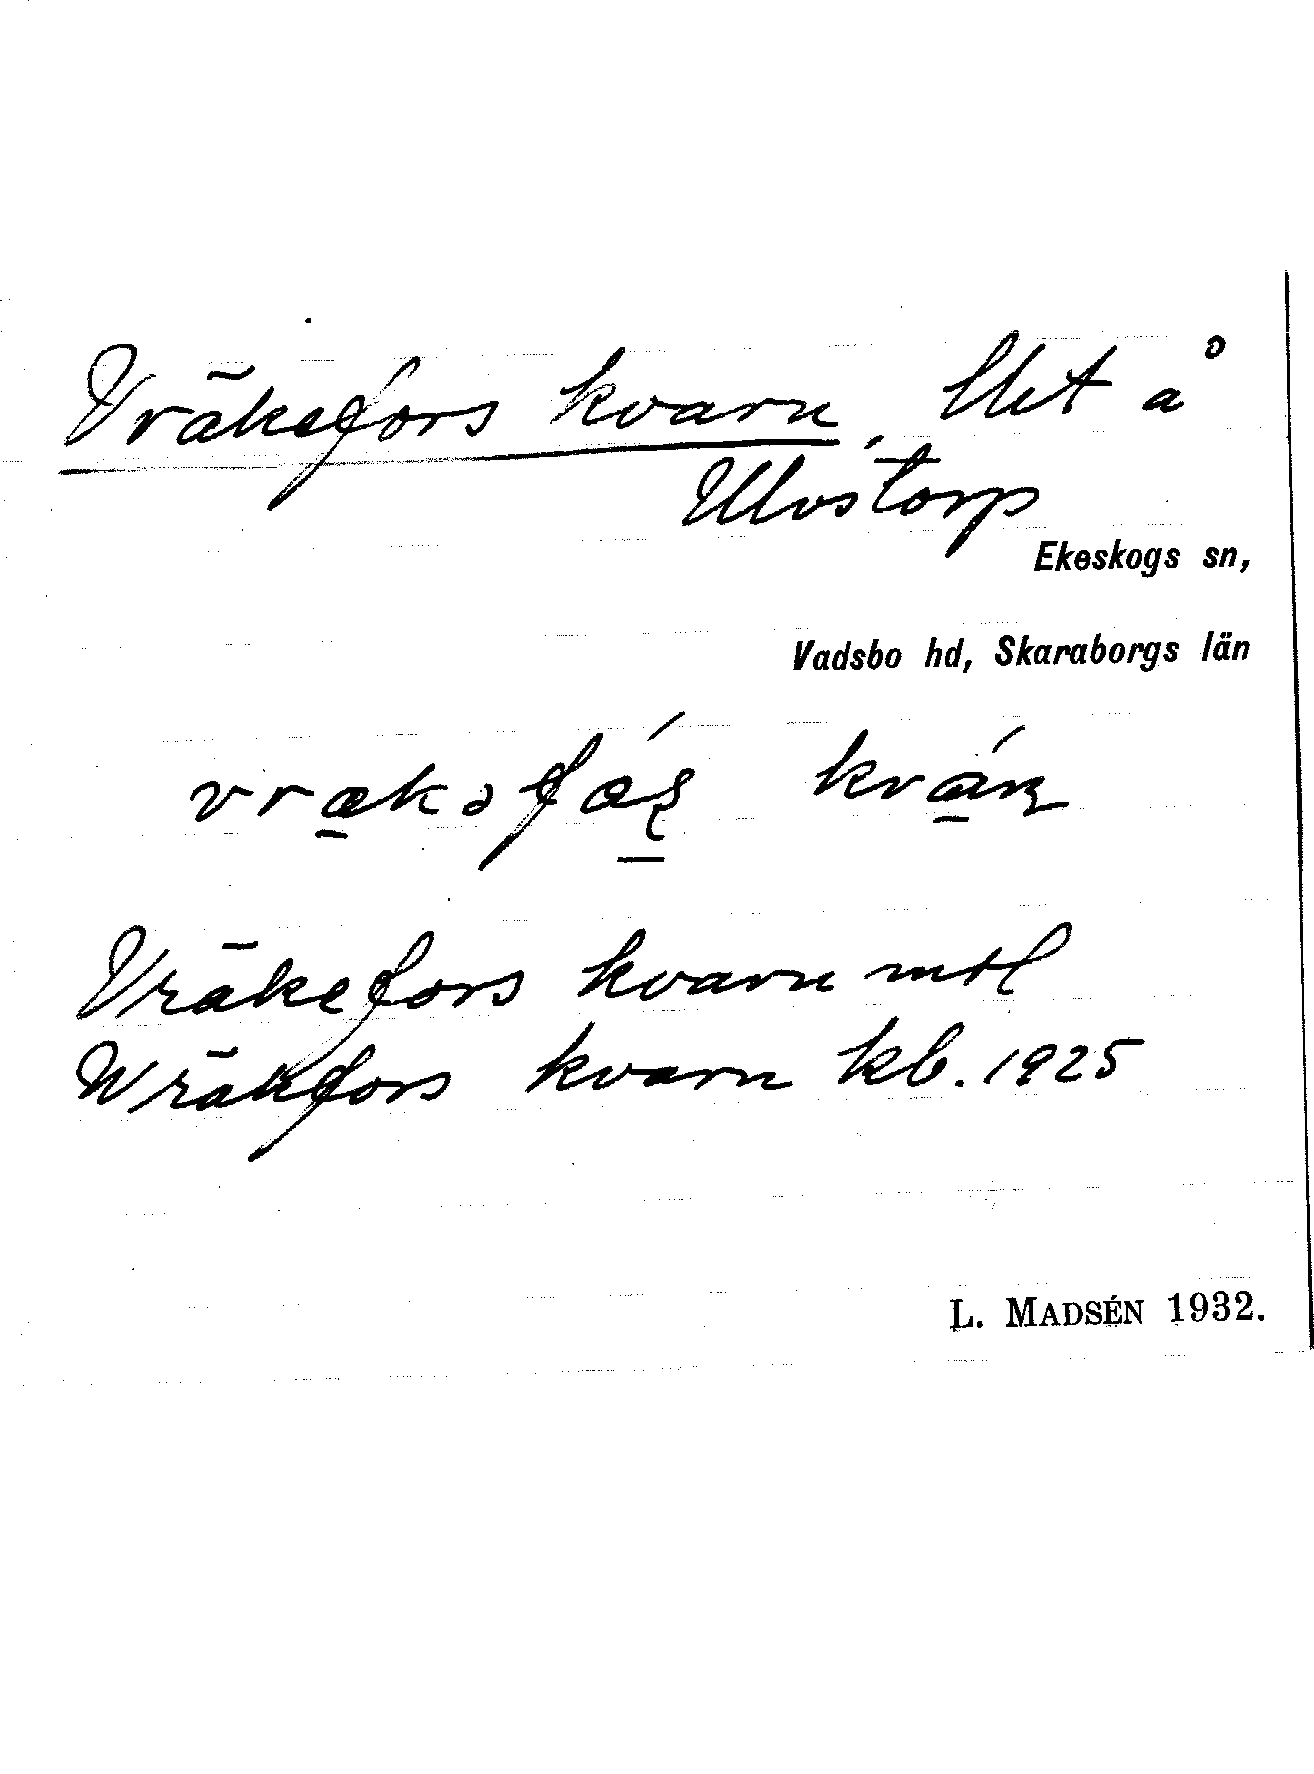 Vräkefors kvarn, lht å
Ulvstorp
Ekeskogs sn,
Vadsbo hd, Skaraborgs län
vrækəfɷʂ kvaɳ
Vräkefors kvarn mtl
Wräkfors kvarn kb. 1925
L. MADSÉN 1932.